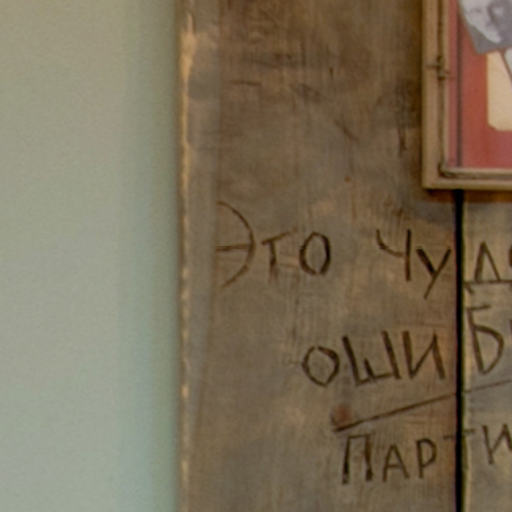 Это чудо
ошиб
парти